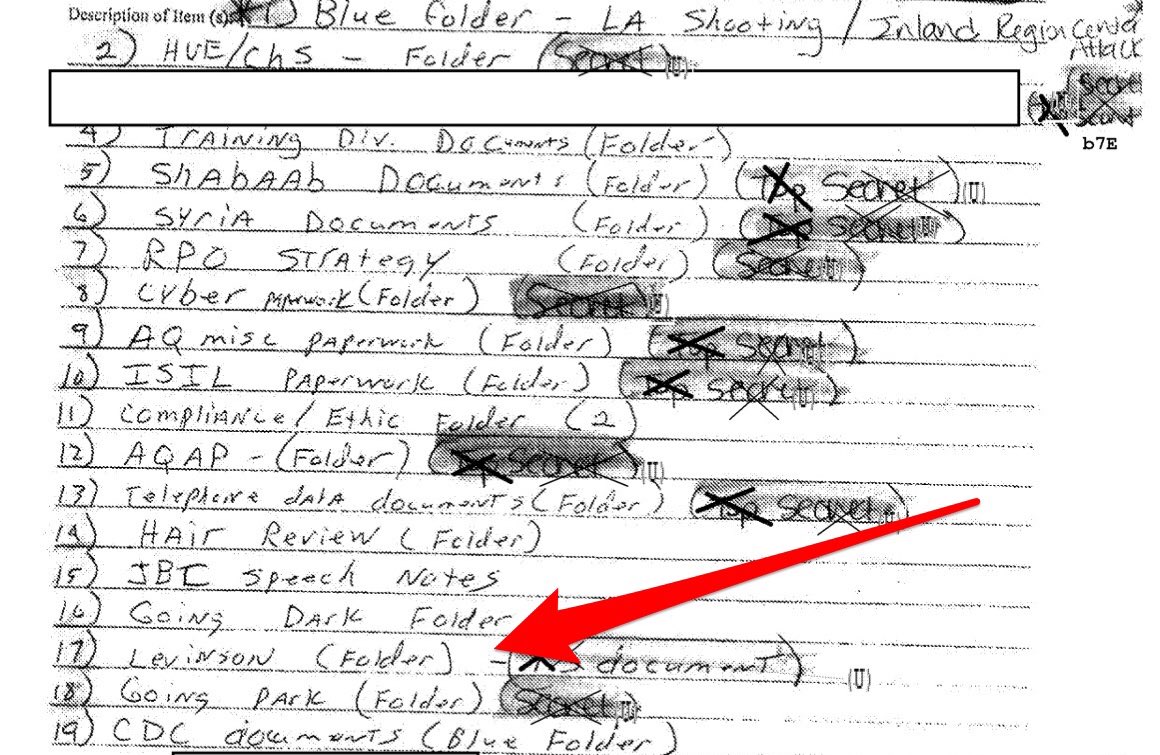 Description of Item (s): *1) Blue Folder - LA Shooting / Inland Region Center Attack
2) HVE/CHS - Folder (Secret) (U)
Secret
b7E
4) Training Div. Documents (Folder)
5) ShAbAAb Documents (Folder) (Top Secret) (U)
6) Syria Documents (Folder) (Top Secret) (U)
7) RPO Strategy (Folder) (Secret) (U)
8) Cyber paperwork (Folder) (Secret) (U)
9) AQ misc paperwork (Folder) (Top Secret) (U)
10) ISIL paperwork (Folder) (Top Secret) (U)
11) Compliance / Ethic Folder (2)
12) AQAP - (Folder) (Top Secret) (U)
13) Telephone data documents (Folder) (Top Secret) (U)
14) Hair Review (Folder)
15) JBC Speech Notes
16) Going Dark Folder
17) Levinson (Folder) - ( document) (U)
18) Going Dark (Folder) (Secret) (U)
19) CDC documents (Blue Folder)